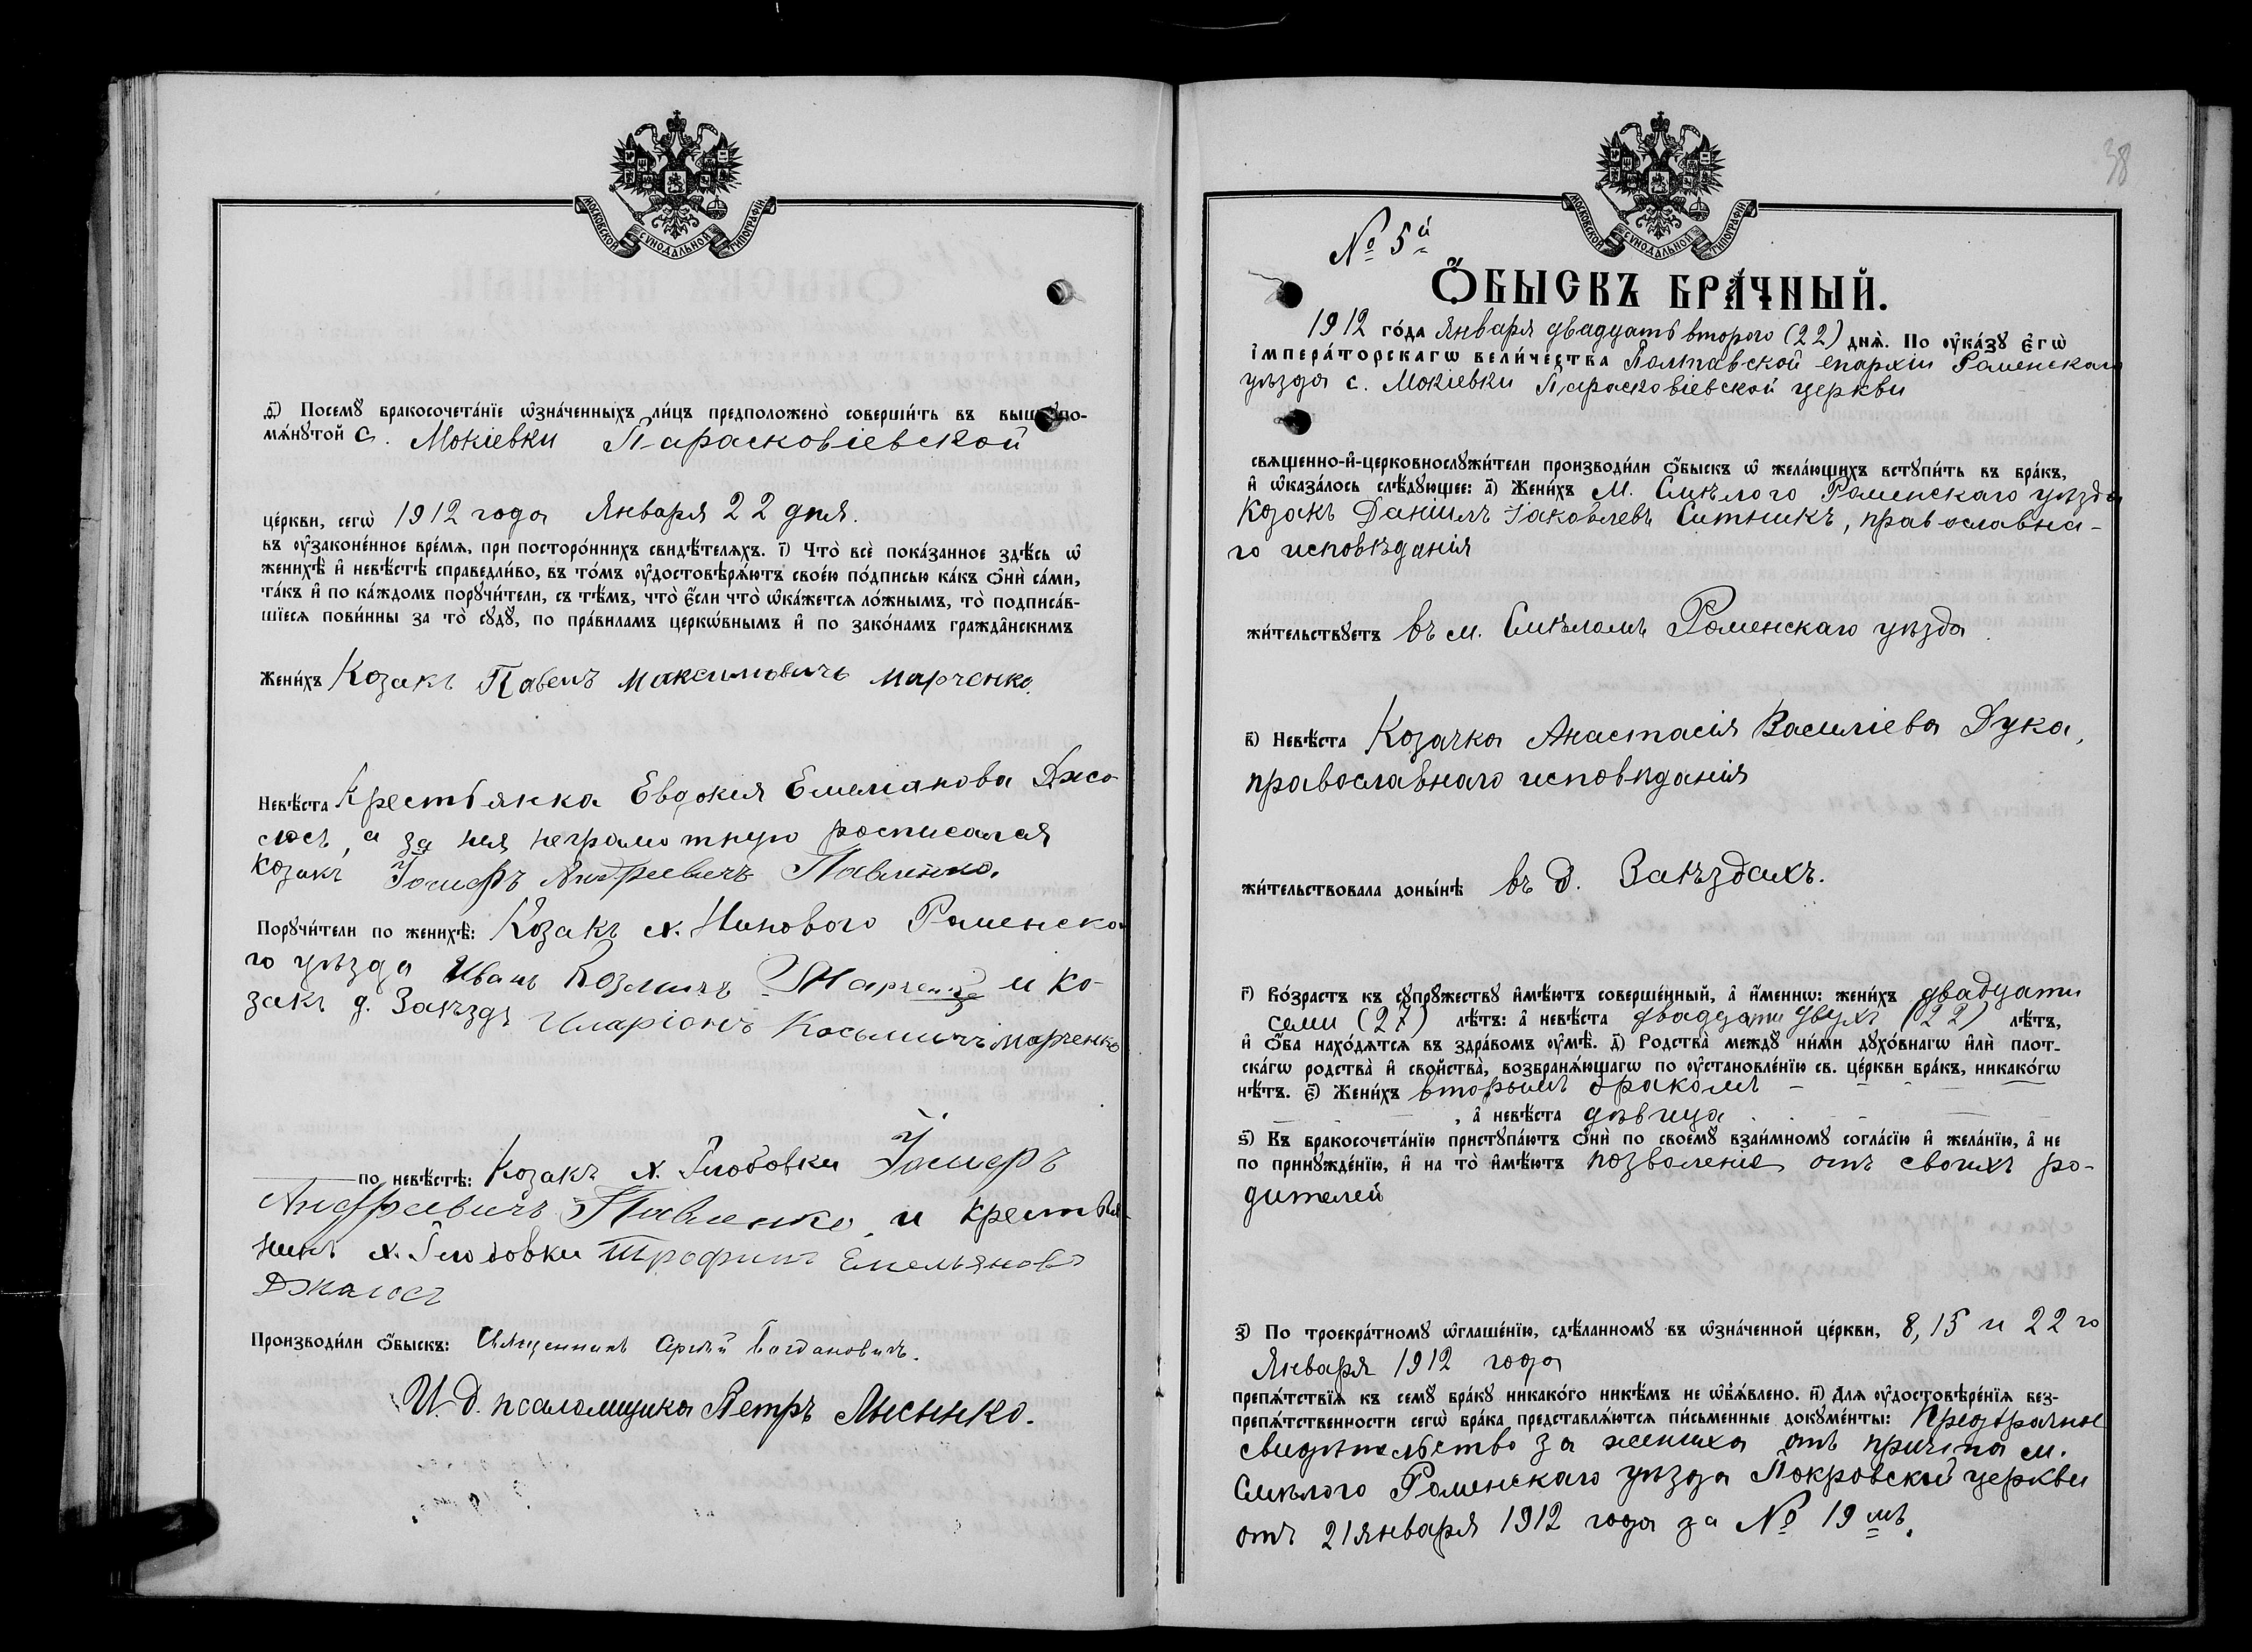 МОСКОВСКОЙ СѴНОДАЛЬНОЙ ТИПОГРАФІИ
ѳ҃) Посемꙋ̀ бракосочета́нїе ѡ҆зна́ченныхъ ли́цъ предположено̀ соверши́ть въ вышепо-
мѧ́нꙋтой с. Мокіевки Парасковіевской
це́ркви, сегѡ̀ 1912 года Января 22 дня.
въ ᲂу҆зако́ненное вре́мѧ, при посторо́ннихъ свидѣ́телѧхъ. і҃) Что̀ всѐ пока́занное здѣ́сь ѡ҆
женихѣ̀ и҆ невѣ́стѣ справедли́во, въ то́мъ ᲂу҆достовѣрѧ́ютъ свое́ю по́дписью ка́къ ѻ҆нѝ са́ми,
та́къ и҆ по ка́ждомъ порꙋчи́тели, съ тѣ́мъ, что̀ є҆́сли что̀ ѡ҆ка́жетсѧ ло́жнымъ, то̀ подписа́в-
шїесѧ пови́нны за то̀ сꙋдꙋ̀, по пра́виламъ церкѡ́внымъ и҆ по зако́намъ гражда̂нскимъ
Жени́хъ Козакъ Павелъ Максимовичъ Марченко.
Невѣ́ста Крестьянка Евдокия Емелианова Джо-
люсъ, а за нея неграмотную росписался
козакъ Іосифъ Андреевичъ Павленко.
Порꙋчи́тели по женихѣ̀: Козакъ х. Нинового Роменска
го уѣзда Иванъ Козмичъ Марченко и ко-
закъ д. Заѣздъ Иларіонъ Косьмичъ Марченко
по невѣ́стѣ: Козакъ х. Глобовки Іосифъ
Андреевичъ Павленко и крестья-
нинъ х. Глобовки Трофимъ Емельяновъ
Джалюсъ
Производи́ли ѻ҆́быскъ: Священникъ Сергѣй Богдановичъ.
И. д. псаломщика Петръ Лысенко.
38
МОСКОВСКОЙ СѴНОДАЛЬНОЙ ТИПОГРАФІИ
№ 5й
Ѻ҆́БЫСКЪ БРА́ЧНЫЙ.
1912 го́да Января двадцать второго (22) днѧ̀. По ᲂу҆ка́зꙋ є҆гѡ̀
і҆мпера́торскагѡ вели́чества Полтавской епархіи Роменскаго
уѣзда с. Мокіевки Парасковіевской церкви
сващенно-и҆-церковнослꙋжи́тели производи́ли ѻ҆́быскъ ѡ҆ жела́ющихъ встꙋпи́ть въ бра́къ,
и҆ ѡ҆каза́лось слѣ́дꙋющее: а҃) Жени́хъ м. Смѣлого Роменскаго уѣзда
Козакъ Даніилъ Іаковлевъ Ситникъ, православна-
го исповѣданія
жи́тельствꙋетъ въ м. Смѣломъ Роменскаго уѣзда
в҃) Невѣ́ста Козачка Анастасія Василіева Дука,
православнаго исповѣданія
жи́тельствовала доны́нѣ въ д. Заѣздахъ.
г҃) Во́зрастъ къ сꙋпрꙋ́жествꙋ и҆мѣ́ютъ соверше́нный, а҆ и҆́менно: жени́хъ двадцати
семи (27) лѣ́тъ: а҆ невѣ́ста двадцати двухъ (22) лѣ́тъ,
и҆ ѻ҆́ба нахо́дѧтсѧ въ здра́вомъ ᲂу҆мѣ̀. д҃) Родства̀ междꙋ̀ ни́ми дꙋхо́внагѡ и҆лѝ плот-
ска́гѡ родства̀ и҆ свойства̀, возбранѧ́ющагѡ по ᲂу҆становле́нїю св. це́ркви бра́къ, никако́гѡ
нѣ́тъ. є҃) Жени́хъ вторымъ бракомъ
, а҆ невѣ́ста дѣвица
ѕ҃) Къ бракосочета́нїю пристꙋпа́ютъ ѻ҆нѝ по своемꙋ̀ взаи́мномꙋ согла́сїю и҆ жела́нїю, а҆ не
по принꙋжде́нїю, и҆ на то̀ и҆мѣ́ютъ позволеніе отъ своихъ ро-
дителей
з҃) По троекра́тномꙋ ѡ҆глаше́нїю, сдѣ́ланномꙋ въ ѡ҆зна́ченной це́ркви, 8, 15 и 22 го
Января 1912 года
препѧ́тствїѧ къ семꙋ̀ бра́кꙋ никако́го никѣ́мъ не ѡ҆б̾ѧ́влено. и҃) Длѧ ᲂу҆достовѣре́нїѧ без-
препѧ́тственности сегѡ̀ бра́ка представлѧ́ютсѧ пи́сьменные докꙋме́нты: Предбрачное
свидѣтельство за жениха отъ причта м.
Смѣлого Роменскаго уѣзда Покровской церкви
отъ 21 января 1912 года за № 19 мъ.